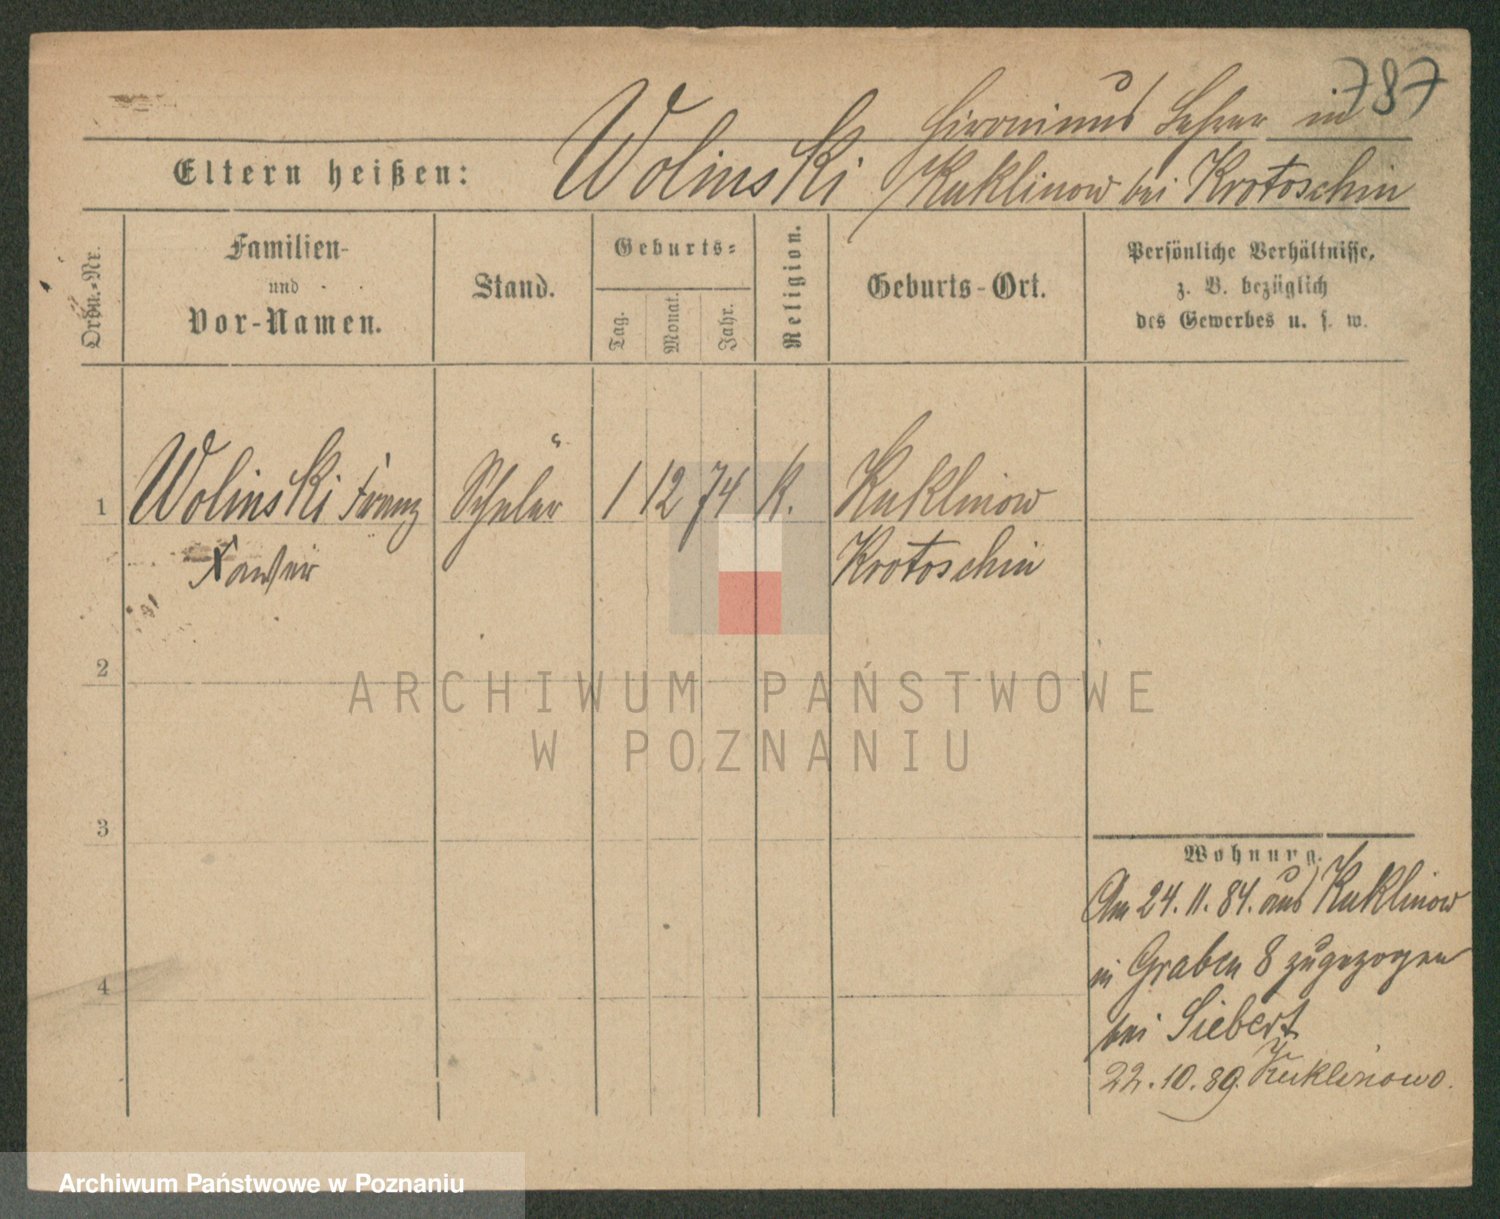 787
Hieronimus Lehrer in
Eltern heißen: Wolinski Kuklinow bei Krotoschin
Ordn.-Nr.
Familien-
und
Vor-Namen.
Stand.
Geburts-
Tag.
Monat.
Jahr.
Religion.
Geburts-Ort.
Persönliche Verhältnisse,
z. B. bezüglich
des Gewerbes u. s. w.
1 Wolinski Franz Schüler 1 12 74 K. Kuklinow
Xawer Krotoschin
2
ARCHIWUM PAŃSTWOWE
W POZNANIU
3
Wohnung.
Am 24. 11. 84. aus Kuklinow
4
in Graben 8 zugezogen
bei Siebert
22. 10. 89. Kuklinowo.
Archiwum Państwowe w Poznaniu